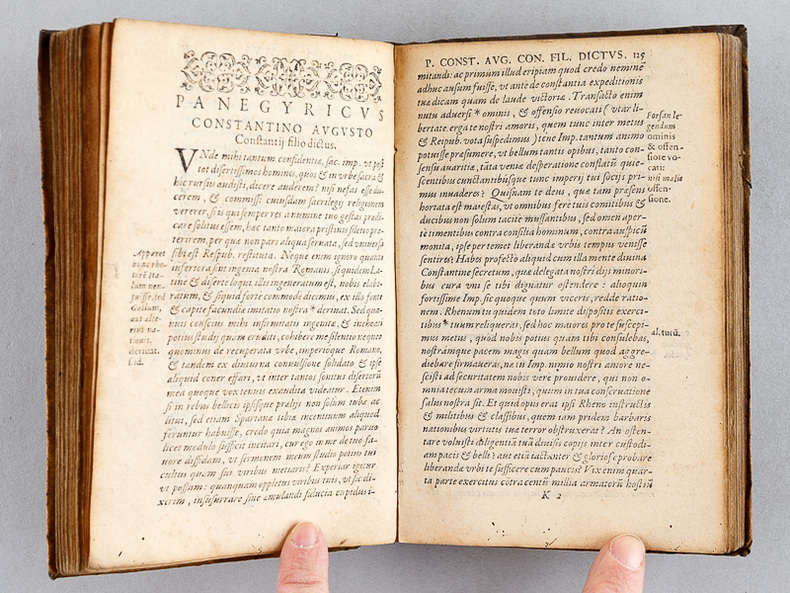 PANEGYRICVS
CONSTANTINO AVGVSTO
Constantij filio dictus.
VNde mihi tantum confidentiæ, sac. imp. vt post
tot disertissimos homines, quos & in vrbe sacra &
hic rursus audisti, dicere auderem? nisi nefas esse du-
cerem, & commissi cuiusdam sacrilegij religionem
vererer, si is qui semper res a numine tuo gestas prædi-
care solitus essem, hac tanto maiora pristinis silētio præ-
terirem, per quæ non pars aliqua seruata, sed vniuersa
sibi est Respub. restituta. Neque enim ignoro quanto
inferiora sint ingenia nostra Romanis. siquidem Lati-
ne & diserte loqui illis ingeneratum est, nobis elabo-
ratum, & siquid forte commode dicimus, ex illo fonte
& capite facundiæ imitatio nostra * deriuat. Sed qua-
uis conscius mihi infirmitatis ingenij, & inchoati
potius studij quam eruditi, cohibere me silentio nequeo
quominus de recuperata vrbe, imperioque Romano,
& tandem ex diuturna conuulsione solidato & ipse
aliquid coner effari, vt inter tantos sonitus disertorū
mea quoque vox tenuis exaudita videatur. Etenim
si in rebus bellicis ipsisque prælijs non solum tubæ ac
litui, sed etiam Spartanæ tibiæ incentium aliquod
feruntur habuisse, credo quia magnos animos paruo
licet modulo sufficit incitari, cur ego in me de tuo fa-
uore diffidam, vt sermonem meum studio potius tui
cultus quam sui viribus metiaris? Experiar igitur
vt possum: quanquam oppletus viribus tuis, vt sic di-
xerim, insusurrare sine æmulandi fiducia cupidus i-
Apparet
rum nō
fuisse, sed
Gallum,
aut alte-
rius na-
tionis.
deriuat.
P. CONST. AVG. CON. FIL. DICTVS. 125
mitandi: ac primum illud eripiam quod credo neminē
adhuc ausum fuisse, vt ante de constantia expeditionis
tuæ dicam quam de laude victoriæ. Transacto enim
nutu aduersi * ominis, & offensio reuocati ( vtar li-
bertate erga te nostri amoris, quem tunc inter metus
& Reipub. vota suspedimus ) tēne Imp. tantum animo
potuisse præsumere, vt bellum tantis opibus, tanto con-
sensu auaritiæ, tāta veniæ desperatione constatū quie-
scentibus cunctantibúsque tunc imperij tui socijs pri-
mus inuaderes? Quisnam te deus, quæ tam præsens
hortata est maiestas, vt omnibus fere tuis comitibus &
ducibus non solum tacite mussantibus, sed omen aper-
te timentibus contra consilia hominum, contra auspicū
monita, ipse per temet liberandæ vrbis tempus venisse
sentires? Habes profecto aliquid cum illa mente diuina
Constantine secretum, quæ delegata nostri dijs minori-
bus cura vni se tibi dignatur ostendere : alioquin
fortissime Imp. sic quoque quum viceris, redde ratio-
nem. Rhenum tu quidem toto limite dispositis exerci-
tibus * tuum reliqueras, sed hoc maiores pro te suscepi-
mus metus, quod nobis potius quam tibi consulebas,
nostrāmque pacem magis quam bellum quod aggre-
diebare firmaueras, næ tu Imp. nimio nostri amore ne-
scisti ad securitatem nobis vere prouidere, qui non o-
mnia tecum arma mouisti, quum in tua conseruatione
salus nostra sit. Et quid opus erat ipsi Rheno instructis
& militibus & classibus, quem tam pridem barbaris
nationibus virtutis tuæ terror obstruxerat? An osten-
tare voluisti diligentiā tuā diuisis copijs inter custodi-
am pacis & belli? aut etiā iactāter & gloriose probare
liberandæ vrbi te sufficere cum paucis? Vix enim quar-
ta parte exercitus cōtra centū millia armatorū hostiū
K 2
Forsan le-
gendum
ominis
& offen-
sione vo-
cati:
nisi malis
offen-
sione.
al. tutū.